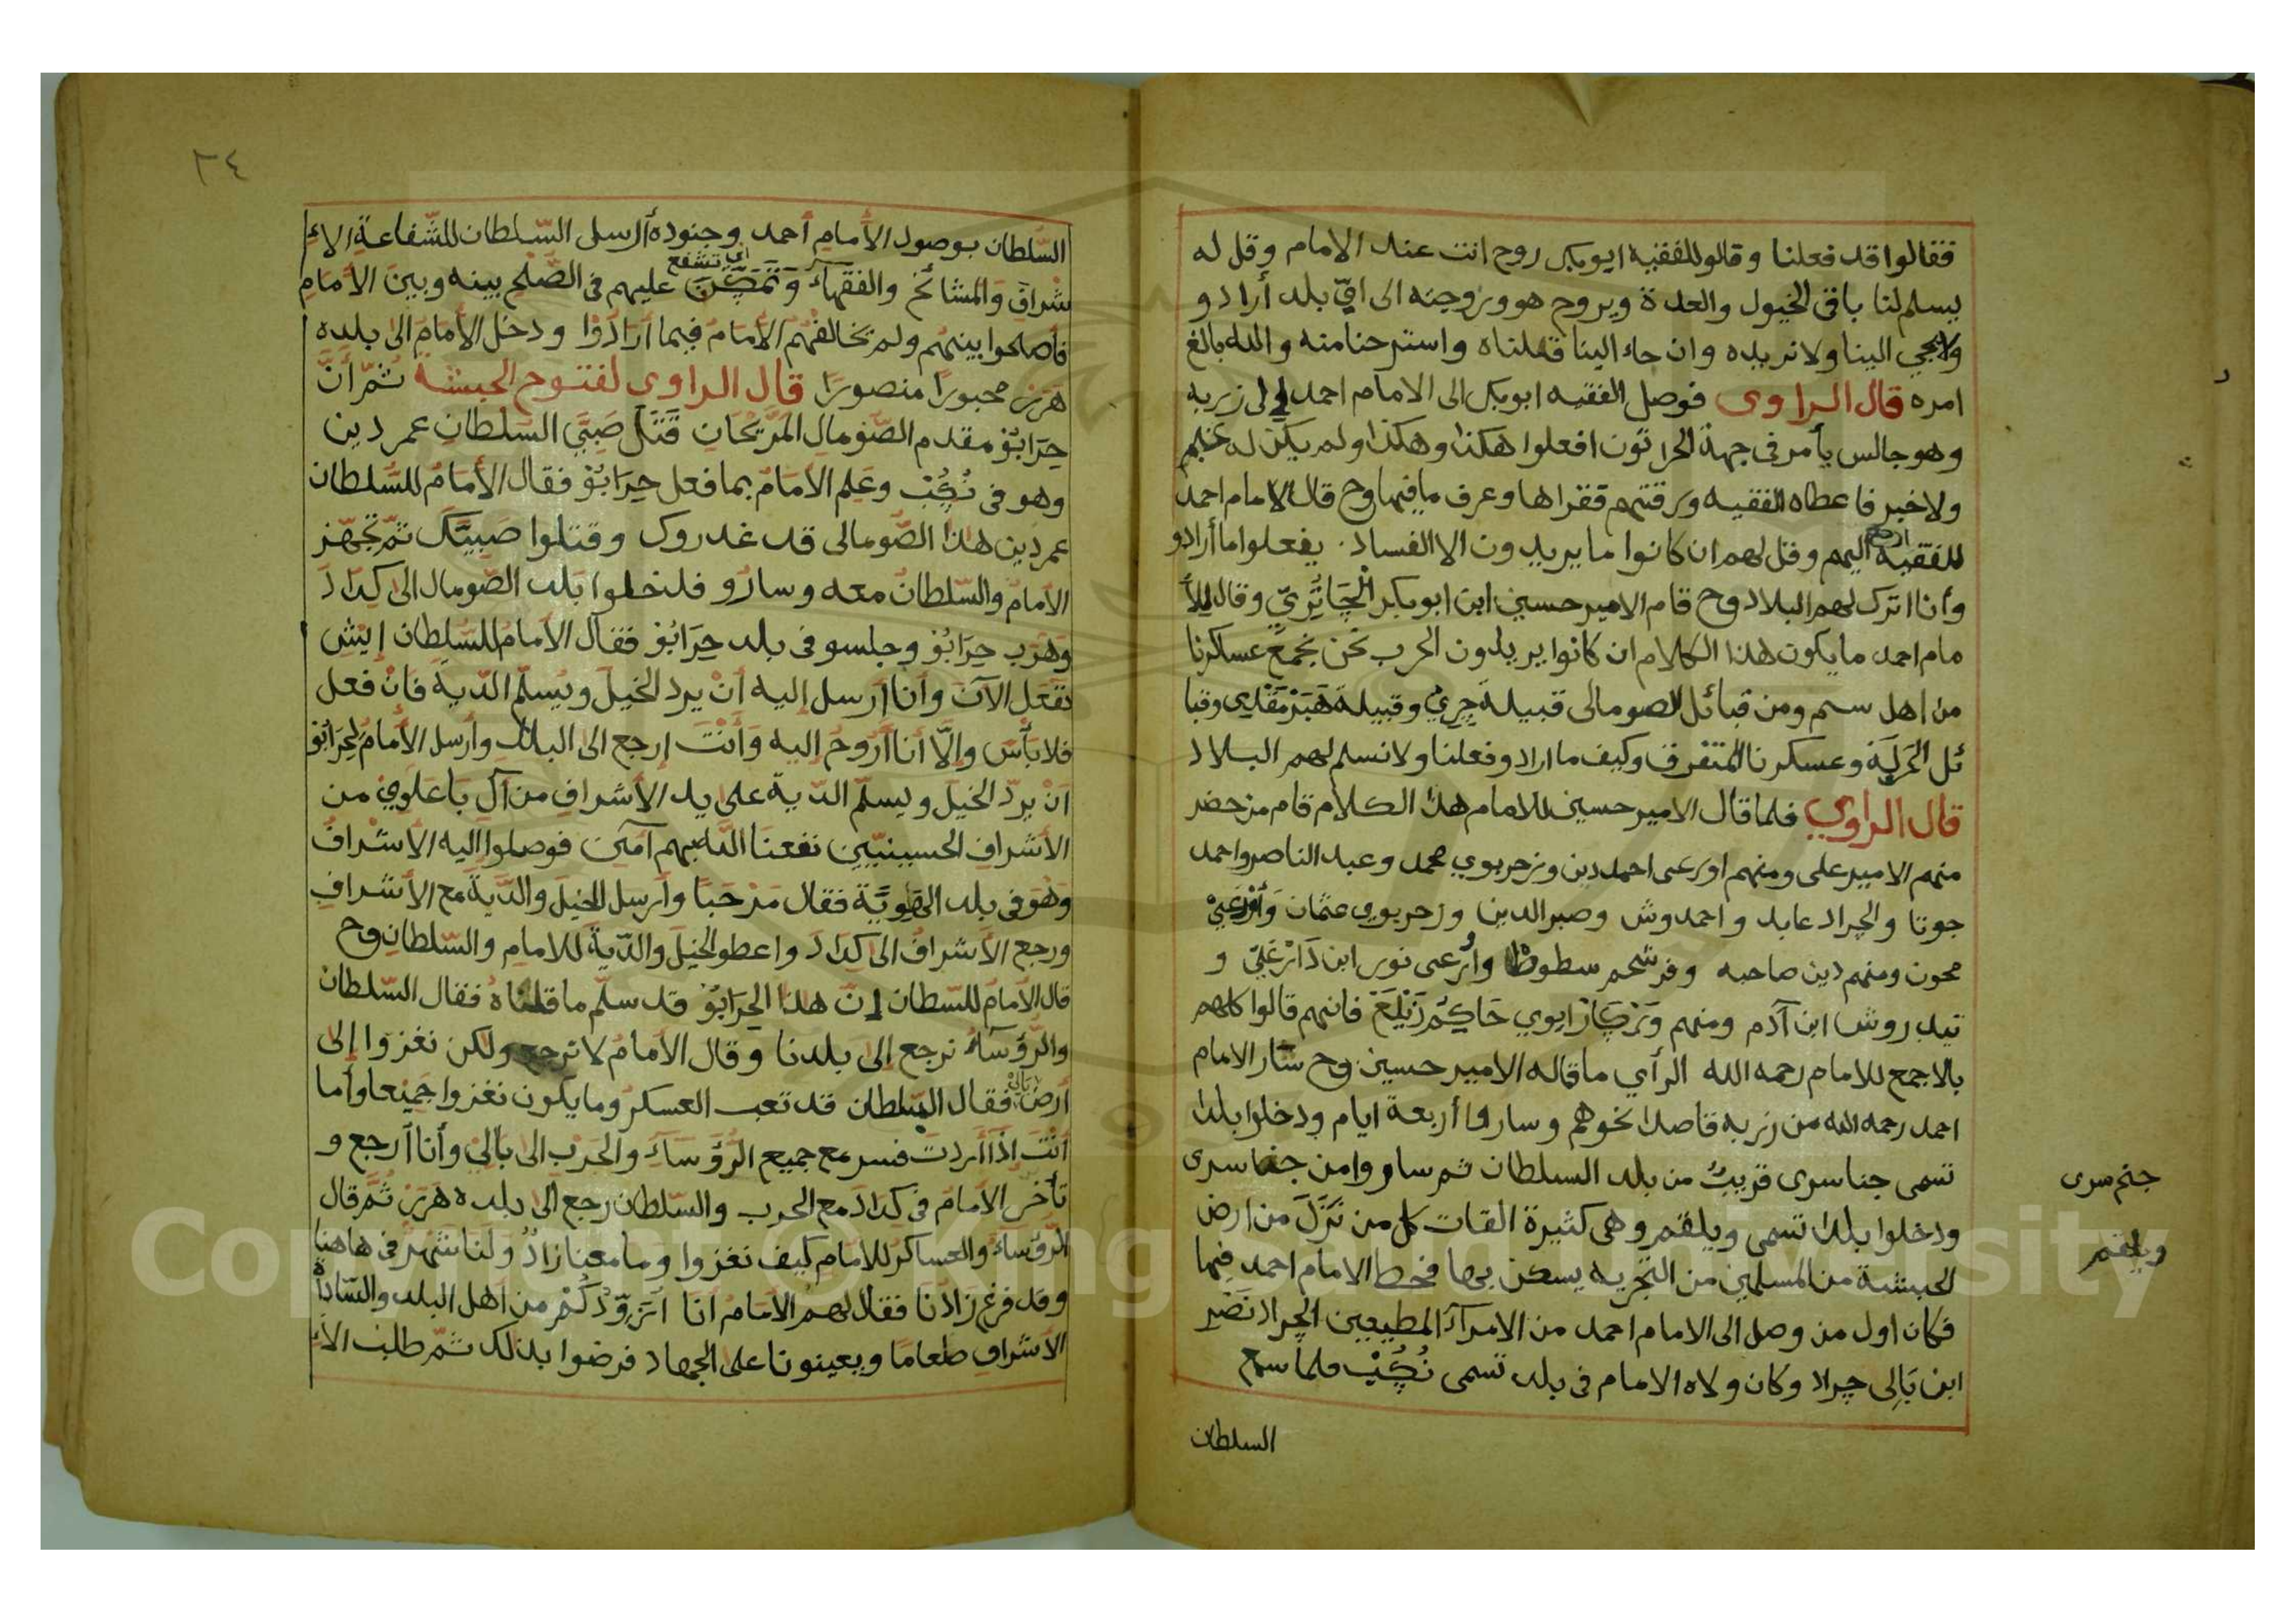 فقالوا قد فعلنا وقالو للفقيه ابوبكر روح انت عند الامام وقل له
يسلم لنا باقى الخيول والعدة ويروح هو وزوجته الى ايّ بلد أراد و
ولايجي الينا ولا نريده وان جاء الينا قتلناه واسترحنا منه والله بالغ
امره قال الراوى فوصل الفقيه ابوبكر الى الامام احمد إلى زربه
وهو جالس يأمر فى جهة الحراثون افعلوا هكذا وهكذا ولم يكن له علم
ولا خبر فاعطاه الفقيه ورقتهم فقراها وعرف ما فيها وح قال الامام احمد
للفقيه ارجع اليهم وقل لهم ان كانوا ما يريدون الا الفساد يفعلوا ما أرادو
وأنا اترك لهم البلاد وح قام الامير حسين ابن ابوبكر الجَاتُرِيّ وقال للأ
مام احمد ما يكون هذا الكلام ان كانوا يريدون الحرب نحن نجمع عسكرنا
من اهل سم ومن قبائل الصومالى قبيلة جِرِيْ وقبيلة هَبَرْ مَقْدِى وقبا
ئل الحَرْلَة وعسكرنا المتفرق وكيف ما ارادو فعلنا ولا نسلم لهم البلاد
قال الراوي فلما قال الامير حسين للامام هذا الكلام قام من حضر
منهم الامير على ومنهم اورعى احمد دين وزحربوي محمد وعبد الناصر واحمد
جوتا والجراد عابد واحمدوش وصبر الدين وزحربوي عثمان وَأُوْرَعِيْ
محون ومنهم دين صاحبه وفرشحم سطوط وأُرْعى نور ابن دَارْعَلِيّ و
تيدروش ابن آدم ومنهم وَرْجَارْ ابوي حَاكِمْ زَيْلَعْ فانهم قالوا كلهم
بالاجمع للامام رحمه الله الرأي ما قاله الامير حسين وح سار الامام
احمد رحمه الله من زربه قاصدا نحوهم وساروا أربعة ايام ودخلوا بلدا
تسمى جناسرى قريبٌ من بلد السلطان ثم ساروا من جناسرى
جنم سرى
ودخلوا بلدا تسمى ويلقم وهى كثيرة القات كل من نَزَلَ من ارض
ويلقم
الحبشة من المسلمين من التجريه يسكن بها فحط الامام احمد فيها
فكان اول من وصل الى الامام احمد من الامرآء المطيعين الجراد نَصَيْر
ابن بَالِى جراد وكان ولاه الامام فى بلد تسمى نُجُبْ فلما سمع
السلطان
٣٤
السّلطان بوصول الأمام أحمد وجنوده أرسل السّلطان للشّفاعة الاء
شْرافَ وَالمشائخ والفقهآء وَتَمَكَّنَ عليهم فى الصّلح بينه وبين الأمام
أي تشفع
فأصلحوا بينهُم ولم يخالفهُم الأمامُ فيما أرادُوْا ودخل الأمامَ الى بلده
هَرَرْ مجبورًا منصورًا قال الراوى لفتوح الحبشة ثمّ أنّ
حِرَابُوْ مقدم الصّومالِ المَرَّيْحَانِ قَتَلَ صَبِىَّ السّلطانِ عمر دين
وهو فى نُجُبْ وعَلِم الأمامُ بما فعل حِرَابُوْ فقال الأمَامُ للسُّلطان
عمر دين هذا الصُّومالى قد غدروك وقتلوا صَبِيَّك ثمّ تجهّز
الأمامُ والسّلطانُ معه وسارُو فدخلوا بلد الصّومال الى كِدَادَ
وَهَرَب حِرَابُوْ وجلسو فى بلد حِرَابُوْ فقال الأمامُ للسُّلطان إيْش
نفعَل الآنَ وأنا أرسل إليه أنْ يرد الخيلَ ويُسلّم الدّيةَ فاِنْ فعل
فلا بَأْسَ وإلّا أنا أَرُوحُ إليه وَأَنْتَ إرجع الى البلد وأرسل الأمامُ لِحِرَابُو
أنْ يردّ الخيلَ وليسلّم الدّيةَ على يد الأشرافِ من آلِ بَاعَلَوِيْ من
الأشراف الحسينيّينَ نفعنا اللّه بهم آمين فوصلوا اليه الأشرافُ
وَهُوَ فى بلد فقال مَرْحَبًا وأرسل الخيلَ والدّيةَ مع الأشرافِ
ورجع الأشرافُ الى كِدَادَ واعطو الخيلَ والدّيةَ للامامِ والسّلطانِ وح
قال الأمَامُ للسّطان إنّ هذا الحِرَابُوْ قد سلّم ما قلناهُ فقال السّلطان
والرُّؤسَآءُ نرجع إلى بلدنا وقال الأمامُ لا نرجع ولكن نغزوا إلى
أرض بَالِىْ فقال السّلطان قد تعب العسكرُ وما يكون نغزوا جَمِيْعا وأما
أنْتَ إذَا أردتَ فسر مع جميع الرُّؤسَآءَ والحَرْب الى بَالِىْ وأنا أرجع و
تأخّر الأمامُ فى كِدَادَ مع الحرب والسّلطان رجع الى بلده هَرَرْ ثُمَّ قال
الرّؤسَآءُ والعساكرُ للأمامِ كيف نغزوا وما معنا زادٌ ولَنا شهر فى هاهنا
وقد فرغ زَادُنَا فقال لهم الأمَامُ أنَا أُزَوِّدُكُمْ من أهل البلد والسّادةْ
الأشرافِ طعامًا ويعينونا على الجهاد فرضوا بذلك ثمّ طلبت الأء